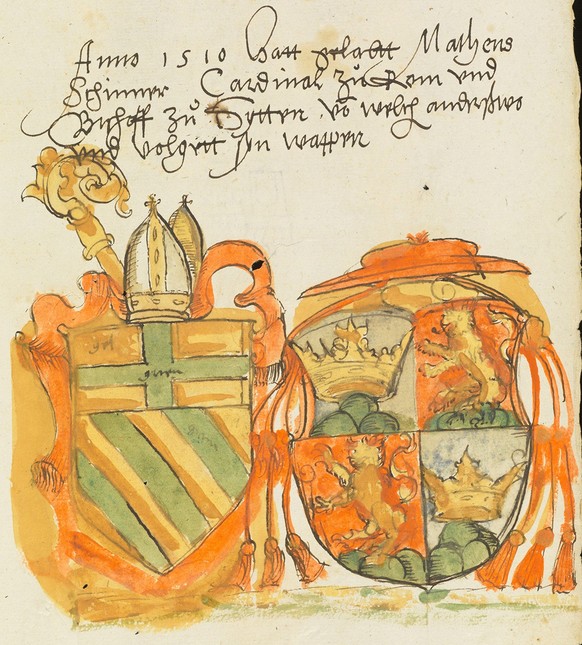 Anno 1510 Hatt gelabt Matheus
Schinner Cardinal zů Rom vnd
Bischoff zů Sytten võ welch anderßwo
vnd volgett syn wappen
gel
grün
grün